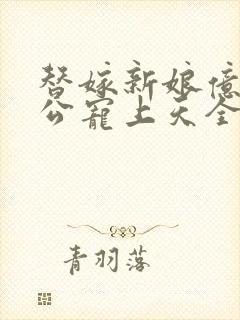 替嫁新娘億
公寵上天全
青羽落